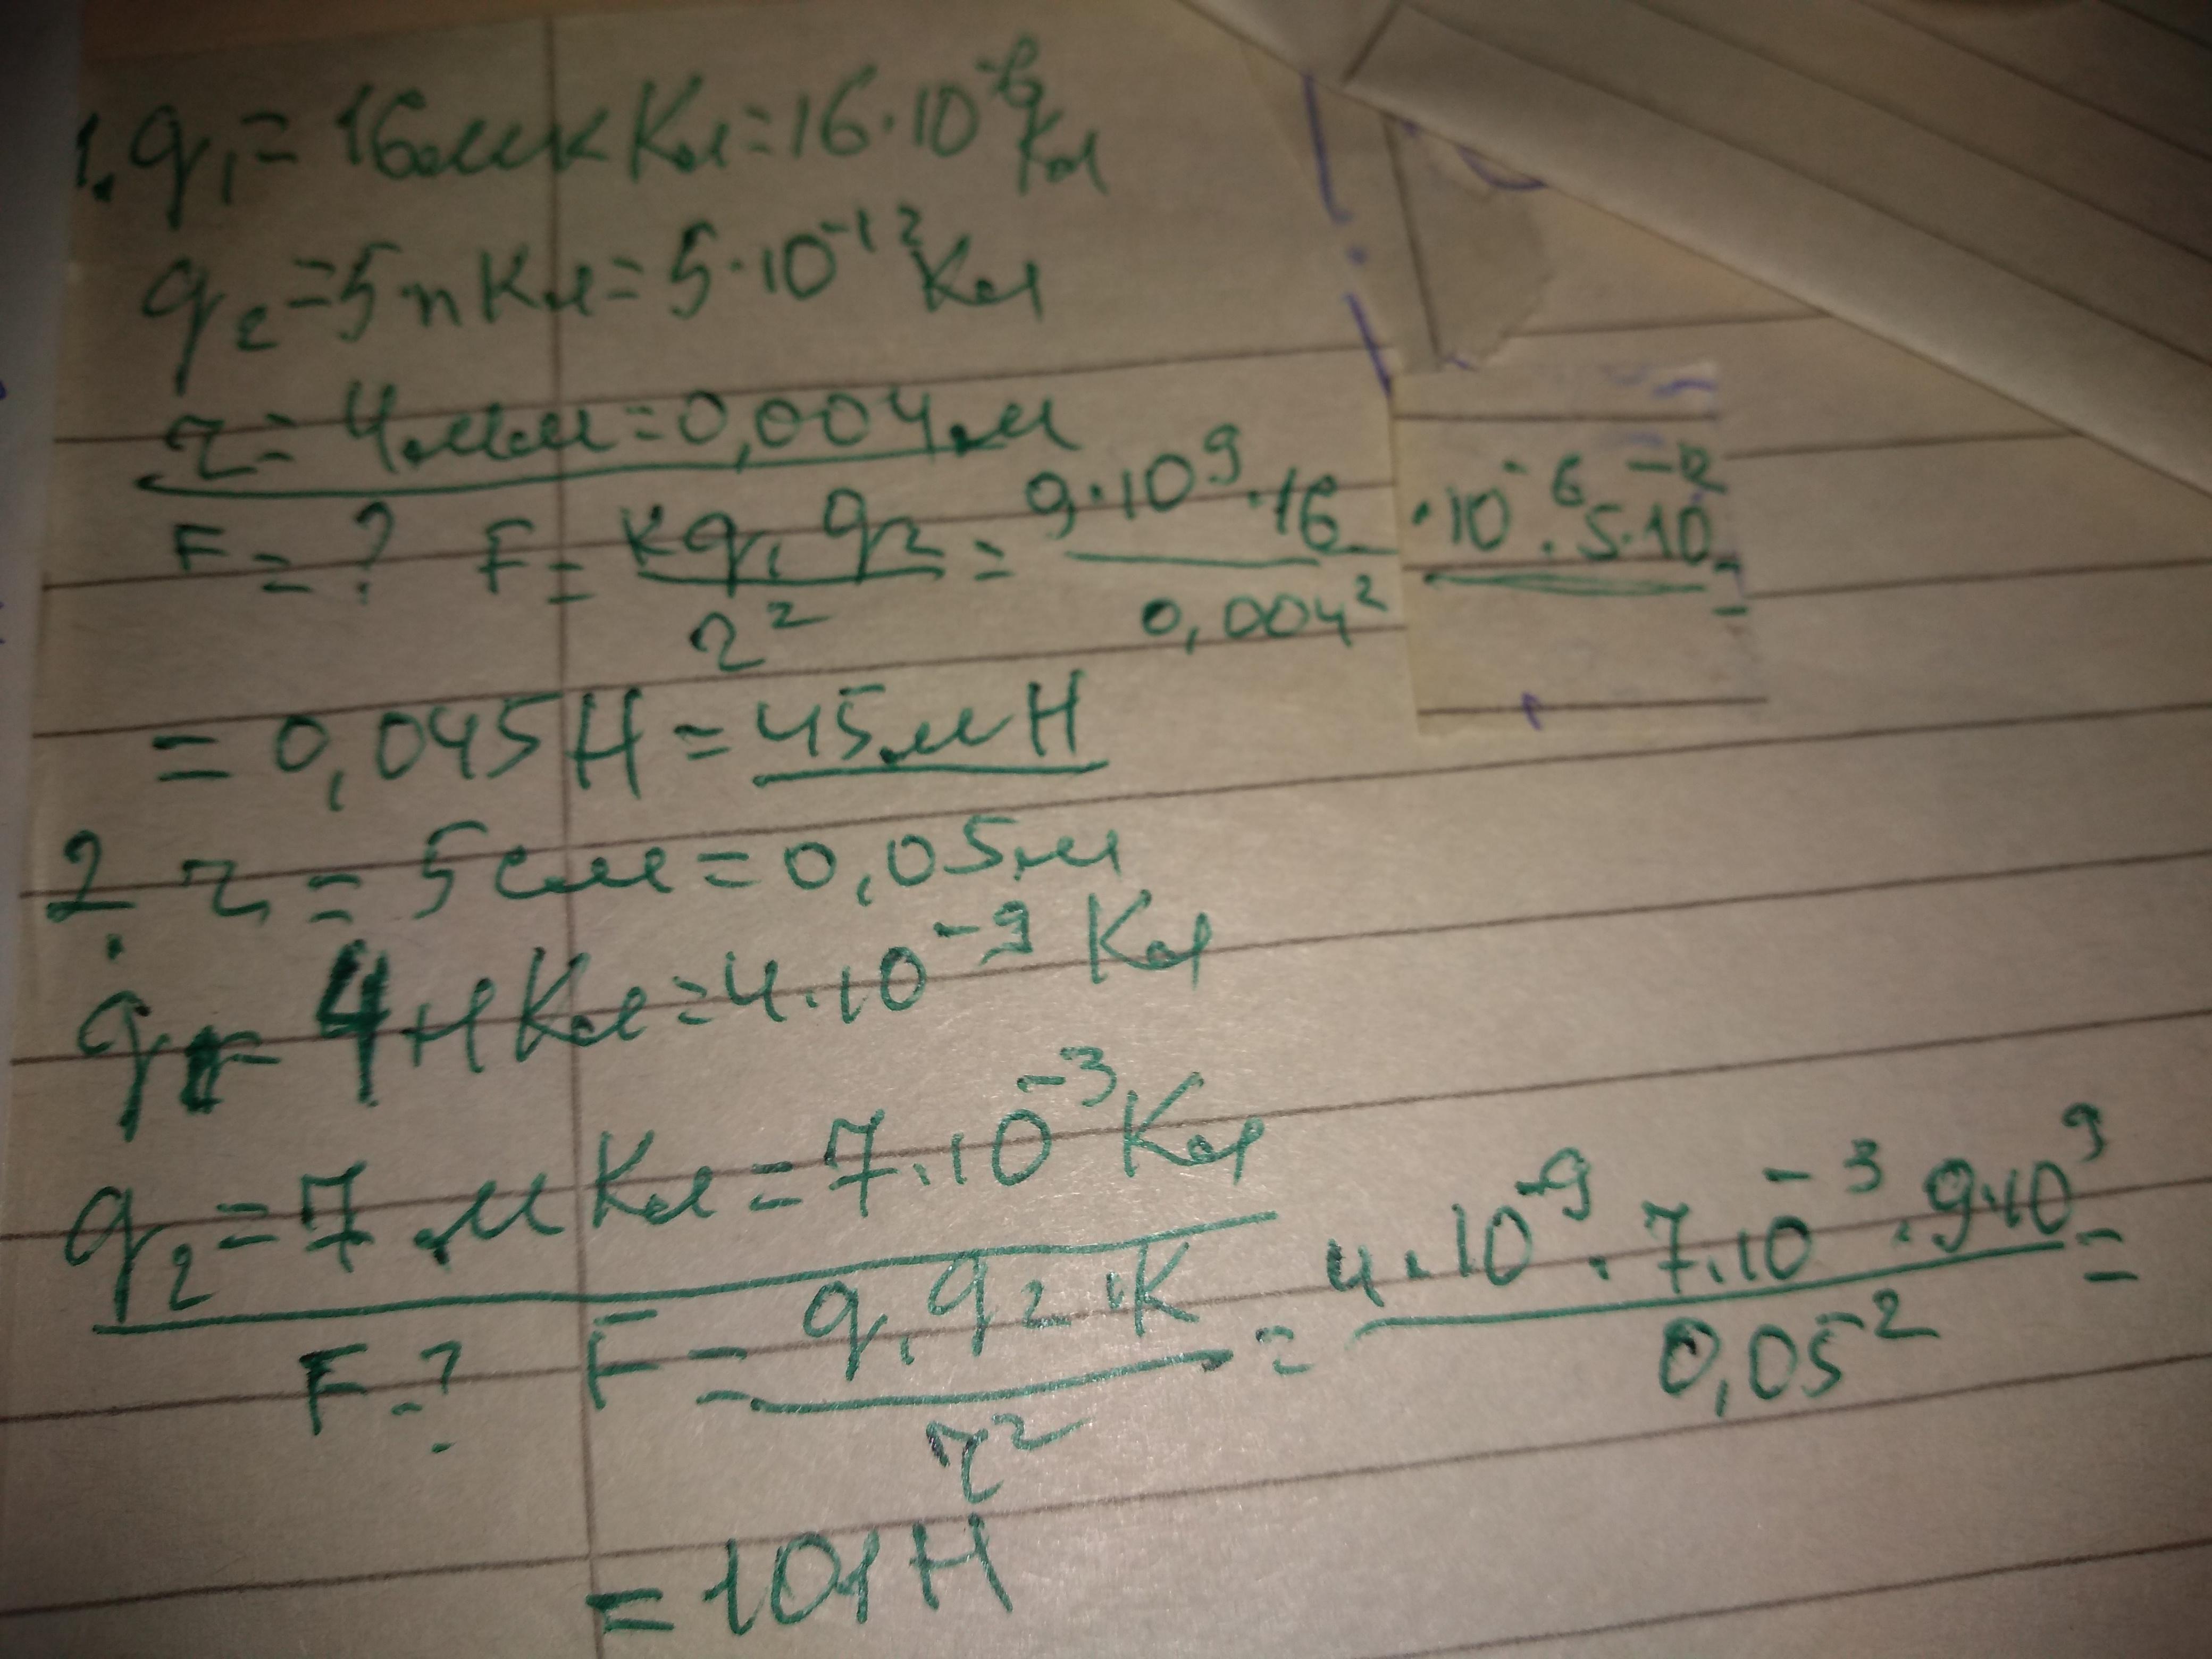 1. q₁ = 16 мкКл = 16·10⁻⁶ Кл
q₂ = 5 пКл = 5·10⁻¹² Кл
r = 4 мм = 0,004 м
F = ? F = kq₁q₂/r² = 9·10⁹·16·10⁻⁶·5·10⁻¹²/0,004² =
= 0,045 Н = 45 мН
2. r = 5 см = 0,05 м
q₁ = 4 нКл = 4·10⁻⁹ Кл
q₂ = 7 мКл = 7·10⁻³ Кл
F - ? F = q₁q₂·k/r² = 4·10⁻⁹·7·10⁻³·9·10⁹/0,05² =
= 101 Н